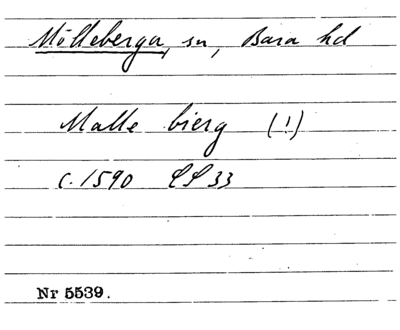 Mölleberga, sn, Bara hd
Malle bierg (!)
c. 1590 LS 33
Nr 5539.